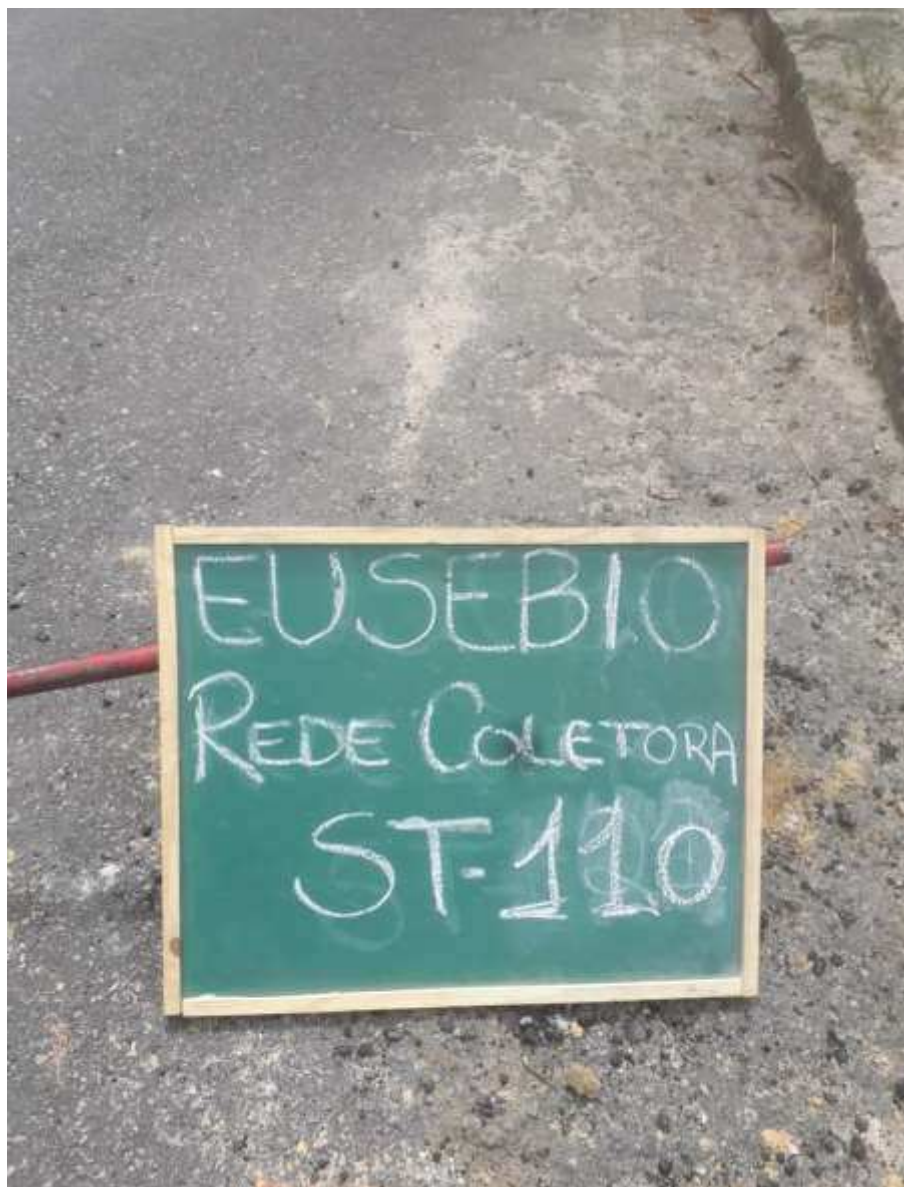 EUSEBIO
REDE COLETORA
ST-110